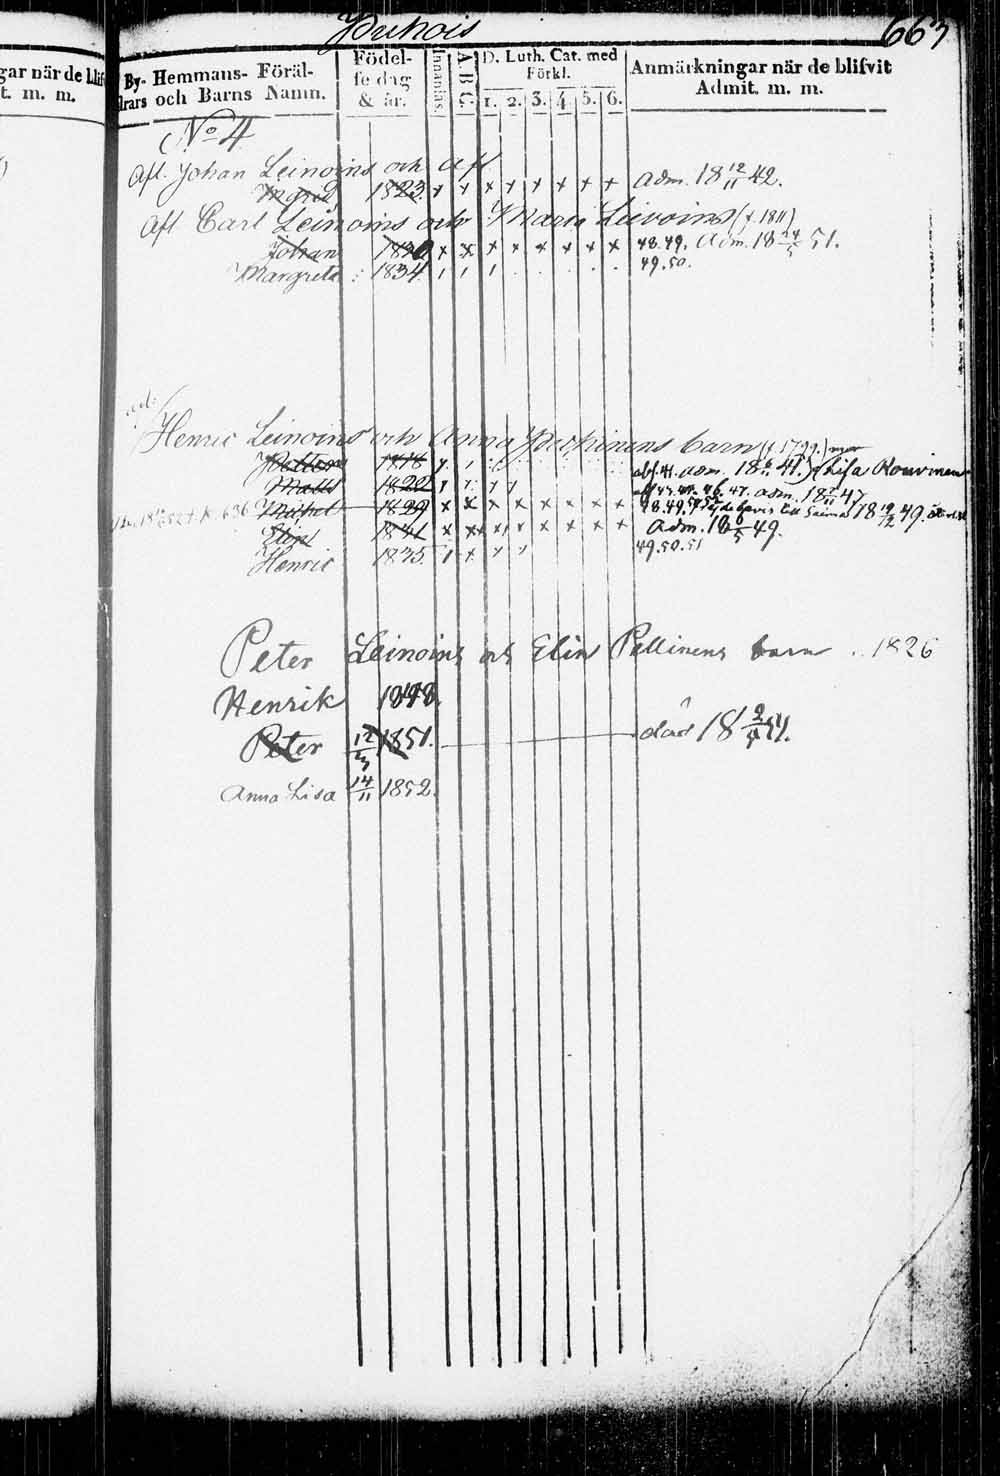 Puhois
663
gar när de blif
t. m. m.
By- Hemmans- Föräl-
drars och Barns Namn.
Födel-
se dag
& år.
Innanläs.
A B C.
D. Luth. Cat. med
Förkl.
1. 2. 3. 4 5. 6.
Anmärkningar när de blifvit
Admit. m. m.
No 4
Afl. Johan Leinoins och Afl
Ingrid 1823. x x x x x x x x adm. 18 12/11 42.
Afl Carl Leinoins och Maria Leivoins (f. 1811)
Johan 1830 x x x x x x x x 48.49. Adm. 18 24/5 51.
Margreta : 1834. 49.50.
Henric Leinoins och Anna Pechinens barn (f. 1799.)
Petter 1818 abs. 41. adm. 18 6/11 41.) Lisa Rouvinen
Matts 1822 46. 47. adm. 18 7/11 47
Michel 1829 x x x x x x x x 48.49. till Saima 18 19/12 49.
Elin 1831 x x x x x x x x Adm. 18 6/5 49.
Henric 1835. 49.50.51
Peter Leinoins och Elin Pellinens barn .. 1826
Henrik 1848.
Peter 12/3 1851. död 18 2/4 51.
Anna Lisa 14/11 1852.